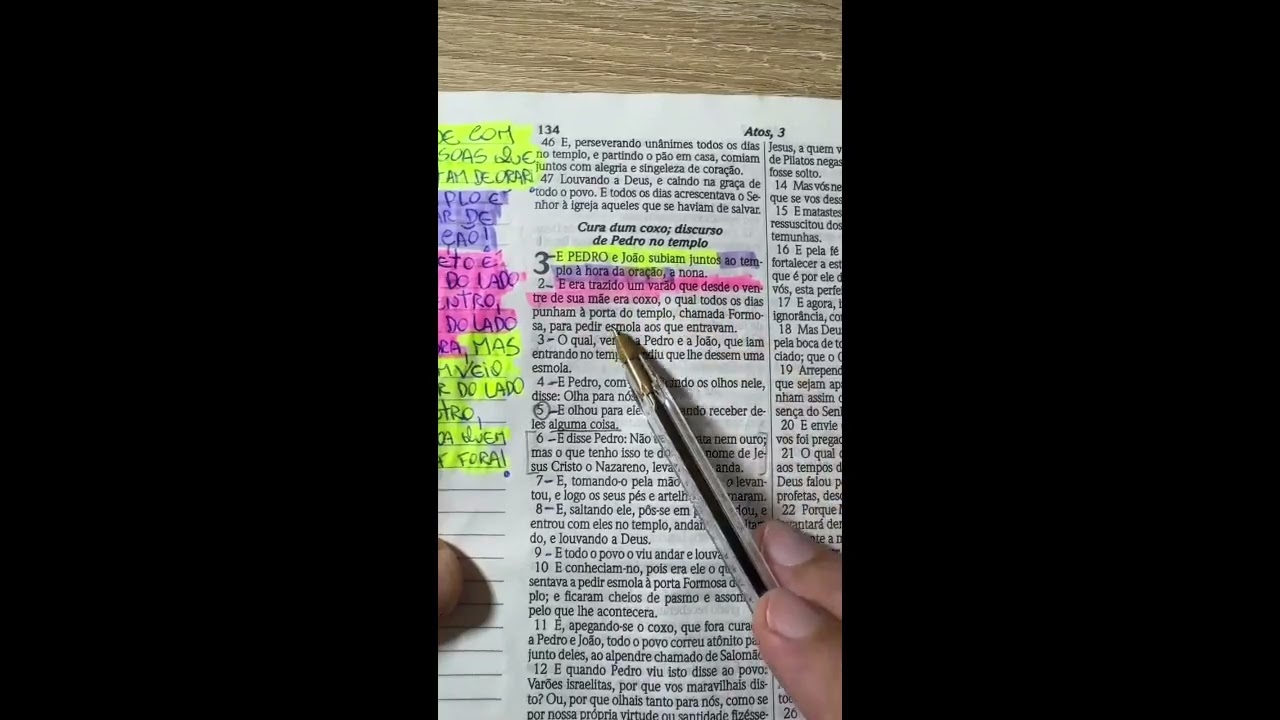 DE COM
SOAS QUE
TAM DE ORAR
PLO E
AR DE
ÇÃO!
ETO E
DO LADO
ENTRO,
DO LADO
RA, MAS
VEIO
R DO LADO
TRO,
DA QUEM
FORA!
134
Atos, 3
46 E, perseverando unânimes todos os dias
no templo, e partindo o pão em casa, comiam
juntos com alegria e singeleza de coração.
47 Louvando a Deus, e caindo na graça de
todo o povo. E todos os dias acrescentava o Se-
nhor à igreja aqueles que se haviam de salvar.
Cura dum coxo; discurso
de Pedro no templo
3 E PEDRO e João subiam juntos ao tem-
plo à hora da oração, a nona.
2 E era trazido um varão que desde o ven-
tre de sua mãe era coxo, o qual todos os dias
punham à porta do templo, chamada Formo-
sa, para pedir esmola aos que entravam.
3 O qual, ve a Pedro e a João, que iam
entrando no temp diu que lhe dessem uma
esmola.
4 E Pedro, com ndo os olhos nele,
disse: Olha para nós
5 E olhou para ele ando receber de-
les alguma coisa.
6 E disse Pedro: Não ata nem ouro;
mas o que tenho isso te do nome de Je-
sus Cristo o Nazareno, leva anda.
7 E, tomando-o pela mão o levan-
tou, e logo os seus pés e artelh maram.
8 E, saltando ele, pôs-se em dou, e
entrou com eles no templo, andan ltan
do, e louvando a Deus.
9 E todo o povo o viu andar e louva
10 E conheciam-no, pois era ele o qu
sentava a pedir esmola à porta Formosa d
plo; e ficaram cheios de pasmo e assom
pelo que lhe acontecera.
11 E, apegando-se o coxo, que fora cura
a Pedro e João, todo o povo correu atônito pa
junto deles, ao alpendre chamado de Salomão
12 E quando Pedro viu isto disse ao povo:
Varões israelitas, por que vos maravilhais dis-
to? Ou, por que olhais tanto para nós, como se
por nossa própria virtude ou santidade fizésse-
Jesus, a quem v
de Pilatos negas
fosse solto.
14 Mas vós ne
que se vos dess
15 E matastes
ressuscitou dos
temunhas.
16 E pela fé
fortalecer a est
que é por ele d
vós, esta perfe
17 E agora, i
ignorância, co
18 Mas Deu
pela boca de to
ciado; que o C
19 Arrepend
que sejam apa
nham assim o
sença do Sen
20 E envie
vos foi prega
21 O qual
aos tempos d
Deus falou p
profetas, des
22 Porque
vantará de
te a m
26